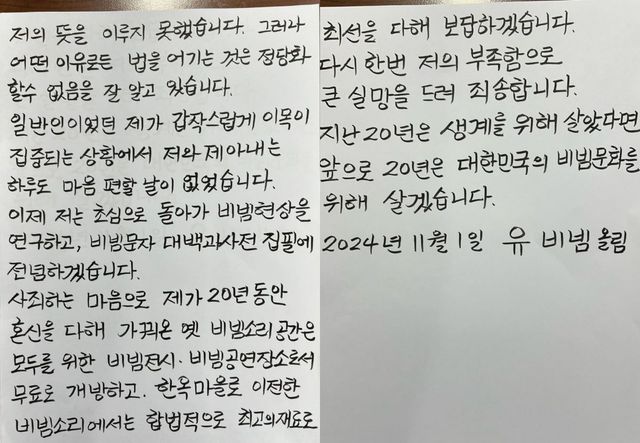 저의 뜻을 이루지 못했습니다. 그러나
어떤 이유로든 법을 어기는 것은 정당화
할수 없음을 잘 알고 있습니다.
일반인이었던 제가 갑작스럽게 이목이
집중되는 상황에서 저와 제아내는
하루도 마음 편할 날이 없었습니다.
이제 저는 초심으로 돌아가 비빔현상을
연구하고, 비빔문자 대백과사전 집필에
전념하겠습니다.
사죄하는 마음으로 제가 20년 동안
혼신을 다해 가꿔온 옛 비빔소리 공간은
모두를 위한 비빔전시·비빔공연장소로서
무료로 개방하고. 한옥마을로 이전한
비빔소리에서는 합법적으로 최고의재료로
최선을 다해 보답하겠습니다.
다시 한번 저의 부족함으로
큰 실망을 드려 죄송합니다.
지난 20년은 생계를 위해 살았다면
앞으로 20년은 대한민국의 비빔문화를
위해 살겠습니다.
2024년 11월 1일 유 비빔 올림